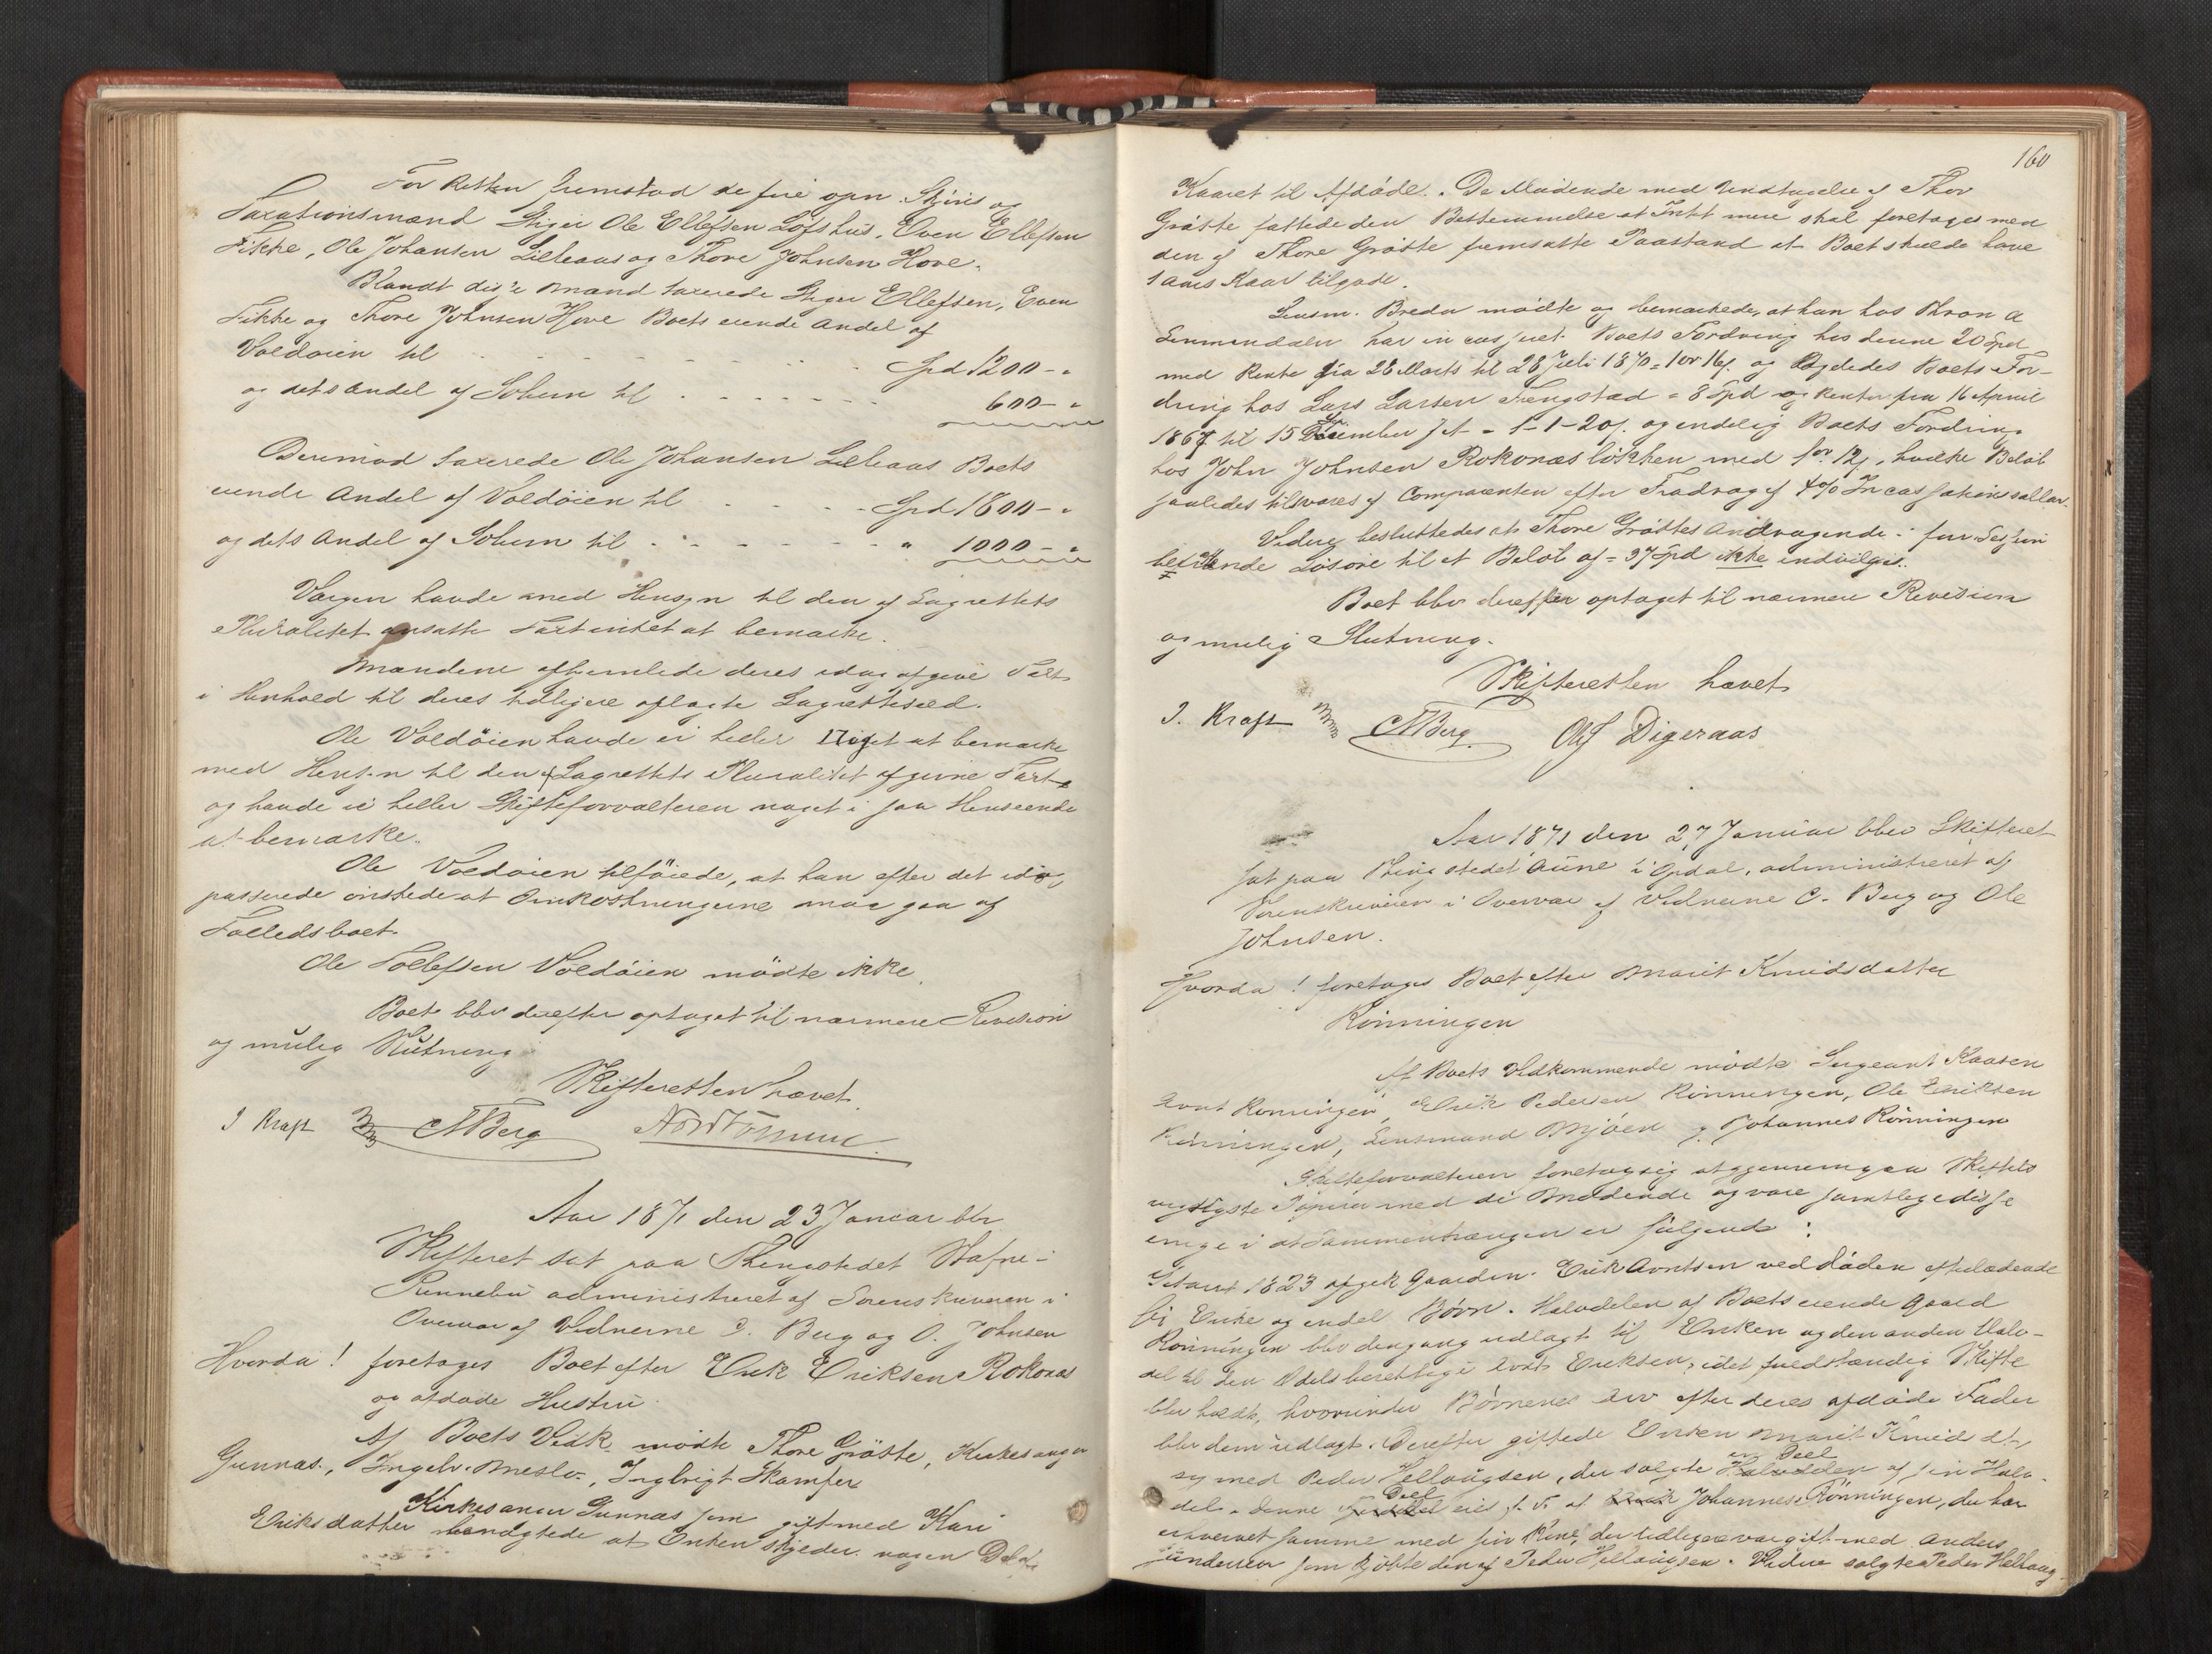 For Retten fremstod de fire opn. Skjøns og
Taxationsmænd Steger Ole Ellefsen Løfshus, Even Ellefsen
Fikke, Ole Johansen Lilleaas og Thore Johnsen Hove.
Blandt disse Mænd taxerede Steger Ellefsen, Even
Fikke og Thore Johnsen Hove Boets eiende Andel af
Voldøien til Spd 1200 - "
og dets Andel af Solum til 600 - "
Derimod taxerede Ole Johansen Lilleaas Boets
eiende Andel af Voldøien til Spd 1800 - "
og dets Andel af Solum til " 1000 - "
Værgen havde med Hensyn til den af Lagrettets
Pluralitet ansatte Taxt intet at bemærke.
Mændene afhjemlede deres idag afgivne Taxt
i Henhold til deres tidligere aflagte Lagrettesed.
Ole Voldøien havde ei heller Noget at bemærke
med Hensyn til den af Lagrettets Pluralitet afgivne Taxt
og havde ei heller Skifteforvalteren noget i saa Henseende
at bemærke.
Ole Voldøien tilføiede, at han efter det idag
passerede ønskede at Omkostningerne maa gaa af
Fælledsboet.
Ole Tollefsen Voldøien mødte ikke.
Boet blev derefter optaget til nærmere Revision
og mulig Slutning
Skifteretten hævet
J Kraft CNBerg
Aar 1871 den 23 Januar blev
Skifteret sat paa Thingstedet Stafne i
Rennebu administreret af Sorenskriveren i
Overvær af Vidnerne C. Berg og O. Johnsen
Hvorda! foretoges Boet efter Erik Eriksen Rokonæs
og afdøde Hustru.
Af Boets Vedk. mødte Thore Grøtte, Kirkesanger
Gunnæs, Ingebr. Meslo, Ingbrigt Skamfer
Kirkesanger Gunnæs som gift med Kari
Eriksdatter benægtede at Enken skyder nogen Del af
160
Kaaret til Afdøde. De Mødende med Undtagelse af Thor
Grøtte fattede den Bestemmelse at Intet mere skal foretages med
den af Thore Grøtte fremsatte Paastand at Boet skulde have
1 Aars Kaar tilgode.
Lensm. Bredu mødte og bemærkede, at han hos Thron a
Lenmendalen har incasseret Boets Fordring hos denne 20 Spd
med Rente fra 28 Marts til 28 Juli 1870 = 1 or 16 s. og ligeledes Boets For-
dring hos Lars Larsen Fengstad = 8 Spd og Renter fra 16 April
1867 til 15 December 1 = 1-1-20 s. og endelig Boets Fordring
hos John Johnsen Rokonæsløkken med for 12 s, hvilke Beløb
saaledes tilsvares af Comparenten efter Fradrag af 4% Incassationssallar.
Videre besluttedes at Thore Grøttes Andragende
Løsøre til et Beløb af = 37 Spd ikke indvilges.
Boet blev derefter optaget til nærmere Revision
og mulig Slutning.
Skifteretten hævet
J. Kraft CNBerg Ole J Digeraas
Aar 1871 den 27 Januar blev Skifteret
sat paa Thingstedet Aune i Opdal, administreret af
Sorenskriveren i Overvær af Vidnerne C. Berg og Ole
Johnsen.
Hvorda! foretoges Boet efter Marit Knudsdatter
Rønningen
Af Boets Vedkommende mødte Sergeant Kaasen
Arnt Rønningen, Erik Pedersen Rønningen, Ole Eriksen
Rønningen, Lensmand Mjøen og Johannes Rønningen
Skifteforvalteren foretog sig at gjennemgaa Skiftets
vigtigste Papirer med de Mødende og vare samtlige disse
enige i at Sammenhængen er følgende:
I Aaret 1823 afgik Gaardm. Erik Arntsen ved Døden efterladende
sig Enke og endel Børn. Halvdelen af Boets eiende Gaard
Rønningen blev dengang udlagt til Enken og den anden Halv-
del til den Odelsberettige Arnt Eriksen, idet fuldstændig Skifte
blev holdt, hvorunder Børnenes Arv efter deres afdøde Fader
blev dem udlagt. Derefter giftede Enken Marit Knudsdtr
sig med Peder Hellaugsen, der solgte Halvdelen en Deel af sin Halv-
del. Denne Deel eies f. T. af Johannes Rønningen, der har
erhvervet samme med sin Kone, der tidligere var gift med Anders
Gundersen som kjøbte den af Peder Hellaugsen. Videre solgte Peder Hellaug-